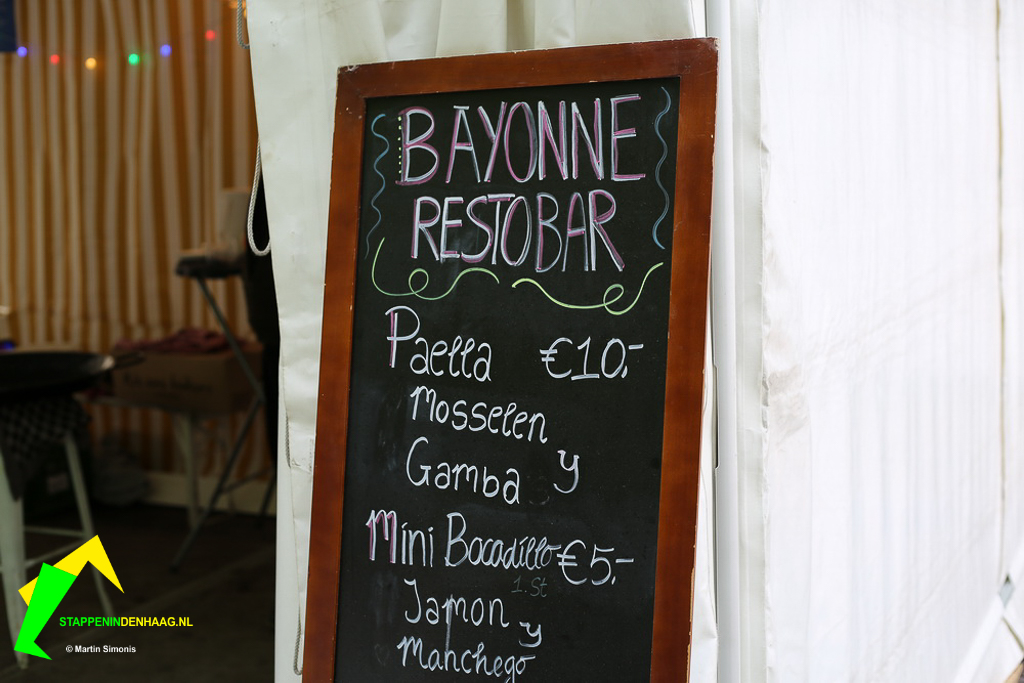 BAYONNE
RESTOBAR
Paella €10.-
Mosselen
y
Gamba
Mini Bocadillo €5.-
1.St
Jamon
y
Manchego
STAPPENINDENHAAG.NL
© Martin Simonis